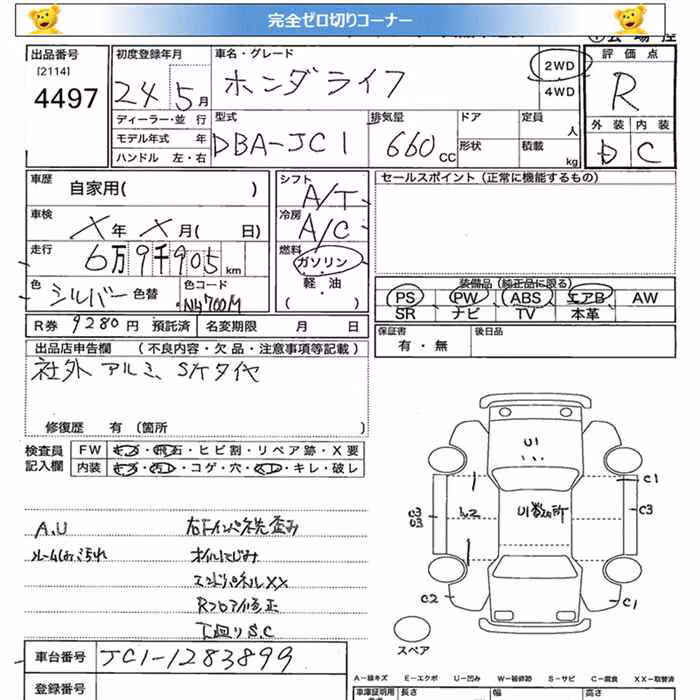 完全ゼロ切りコーナー
出品番号
[2114]
4497
初度登録年月
24 5月
ディーラー・並 行
モデル年式 年
ハンドル 左・右
車名・グレード
ホンダライフ
2WD
4WD
評 価 点
R
外 装 内 装
D C
型式
DBA-JC1
排気量
660 CC
ドア
形状
定員
人
積載
kg
車歴
自家用( )
車検
X年 X月( 日)
走行
6万9千905 km
色
シルバー 色替
色コード
NH700M
R券 9280円 預託済 名変期限 月 日
シフト
A/T
冷房
A/C
燃料
ガソリン
軽 油
( )
セールスポイント (正常に機能するもの)
装備品 (純正品に限る)
PS PW ABS エアB AW
SR ナビ TV 本革
保証書
有・無
後日品
出品店申告欄 (不良内容・欠品・注意事項等記載)
社外 アルミ、Sタイヤ
修復歴 有 (箇所 )
検査員
記入欄
FW キズ・飛石・ヒビ割・リペア跡・X要
内装 キズ・汚レ・コゲ・穴・スレ・キレ・破レ
A.U
オイルにじみ
Rフロア修正
下廻りS.C
U1
U1数ヶ所
C1
C3
C3
C2
C1
スペア
車台番号
JC1-1283899
登録番号
A-線キズ E-エクボ U-凹み W-補修跡 S-サビ C-腐食 XX-取替済
車庫証明用
長さ
幅
高さ